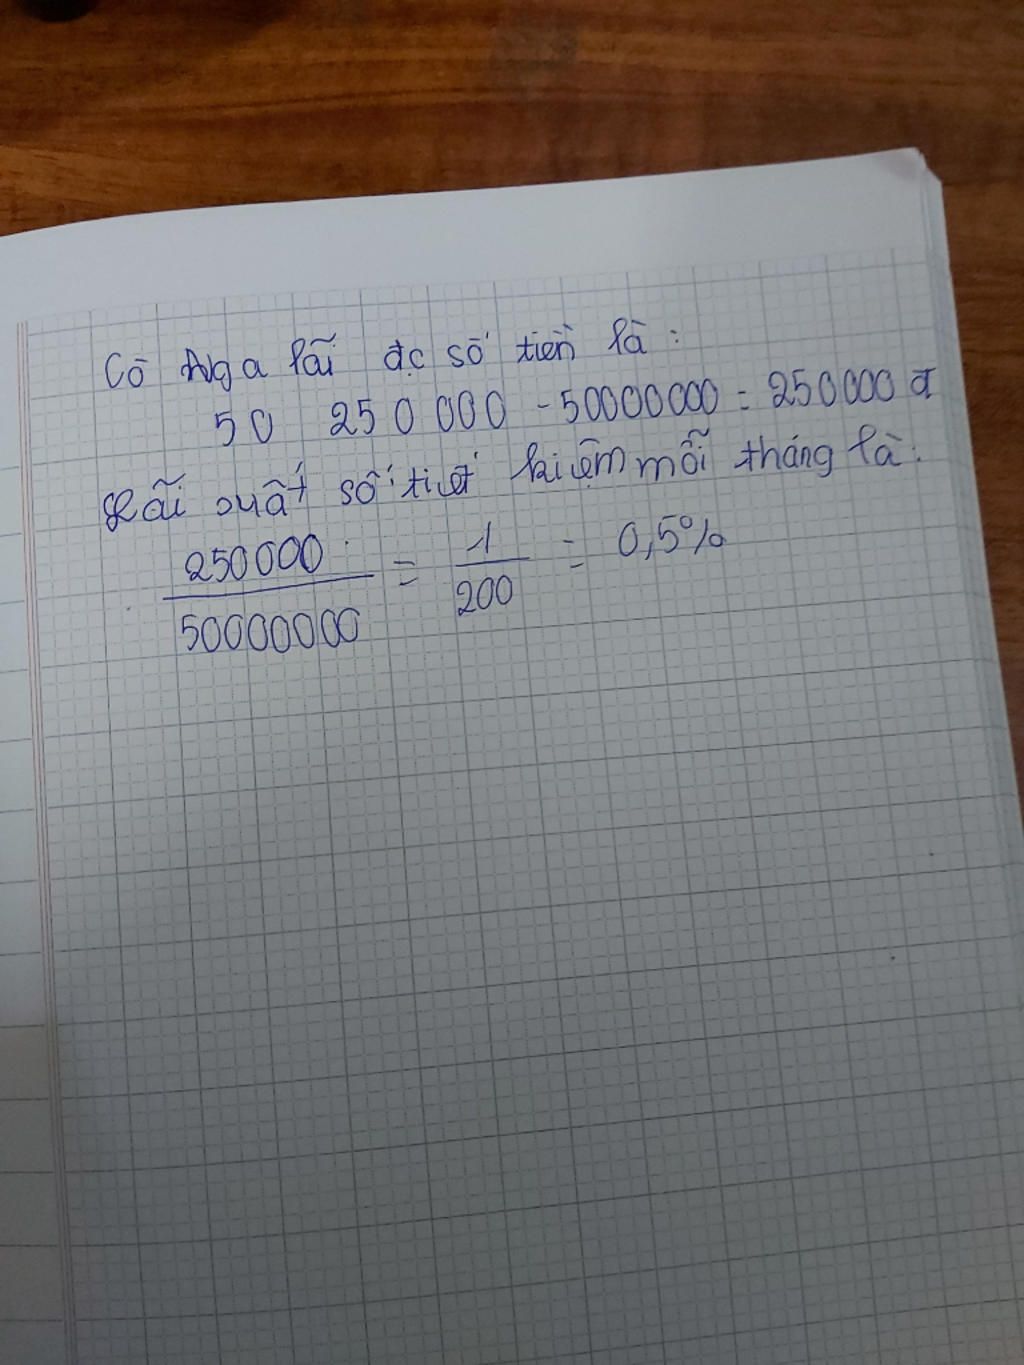 Cô Nga lãi đc số tiền là :
50 250 000 - 50000000 = 250000 đ
Lãi suất số tiết kiệm mỗi tháng là :
250000 / 50000000 = 1 / 200 = 0,5%